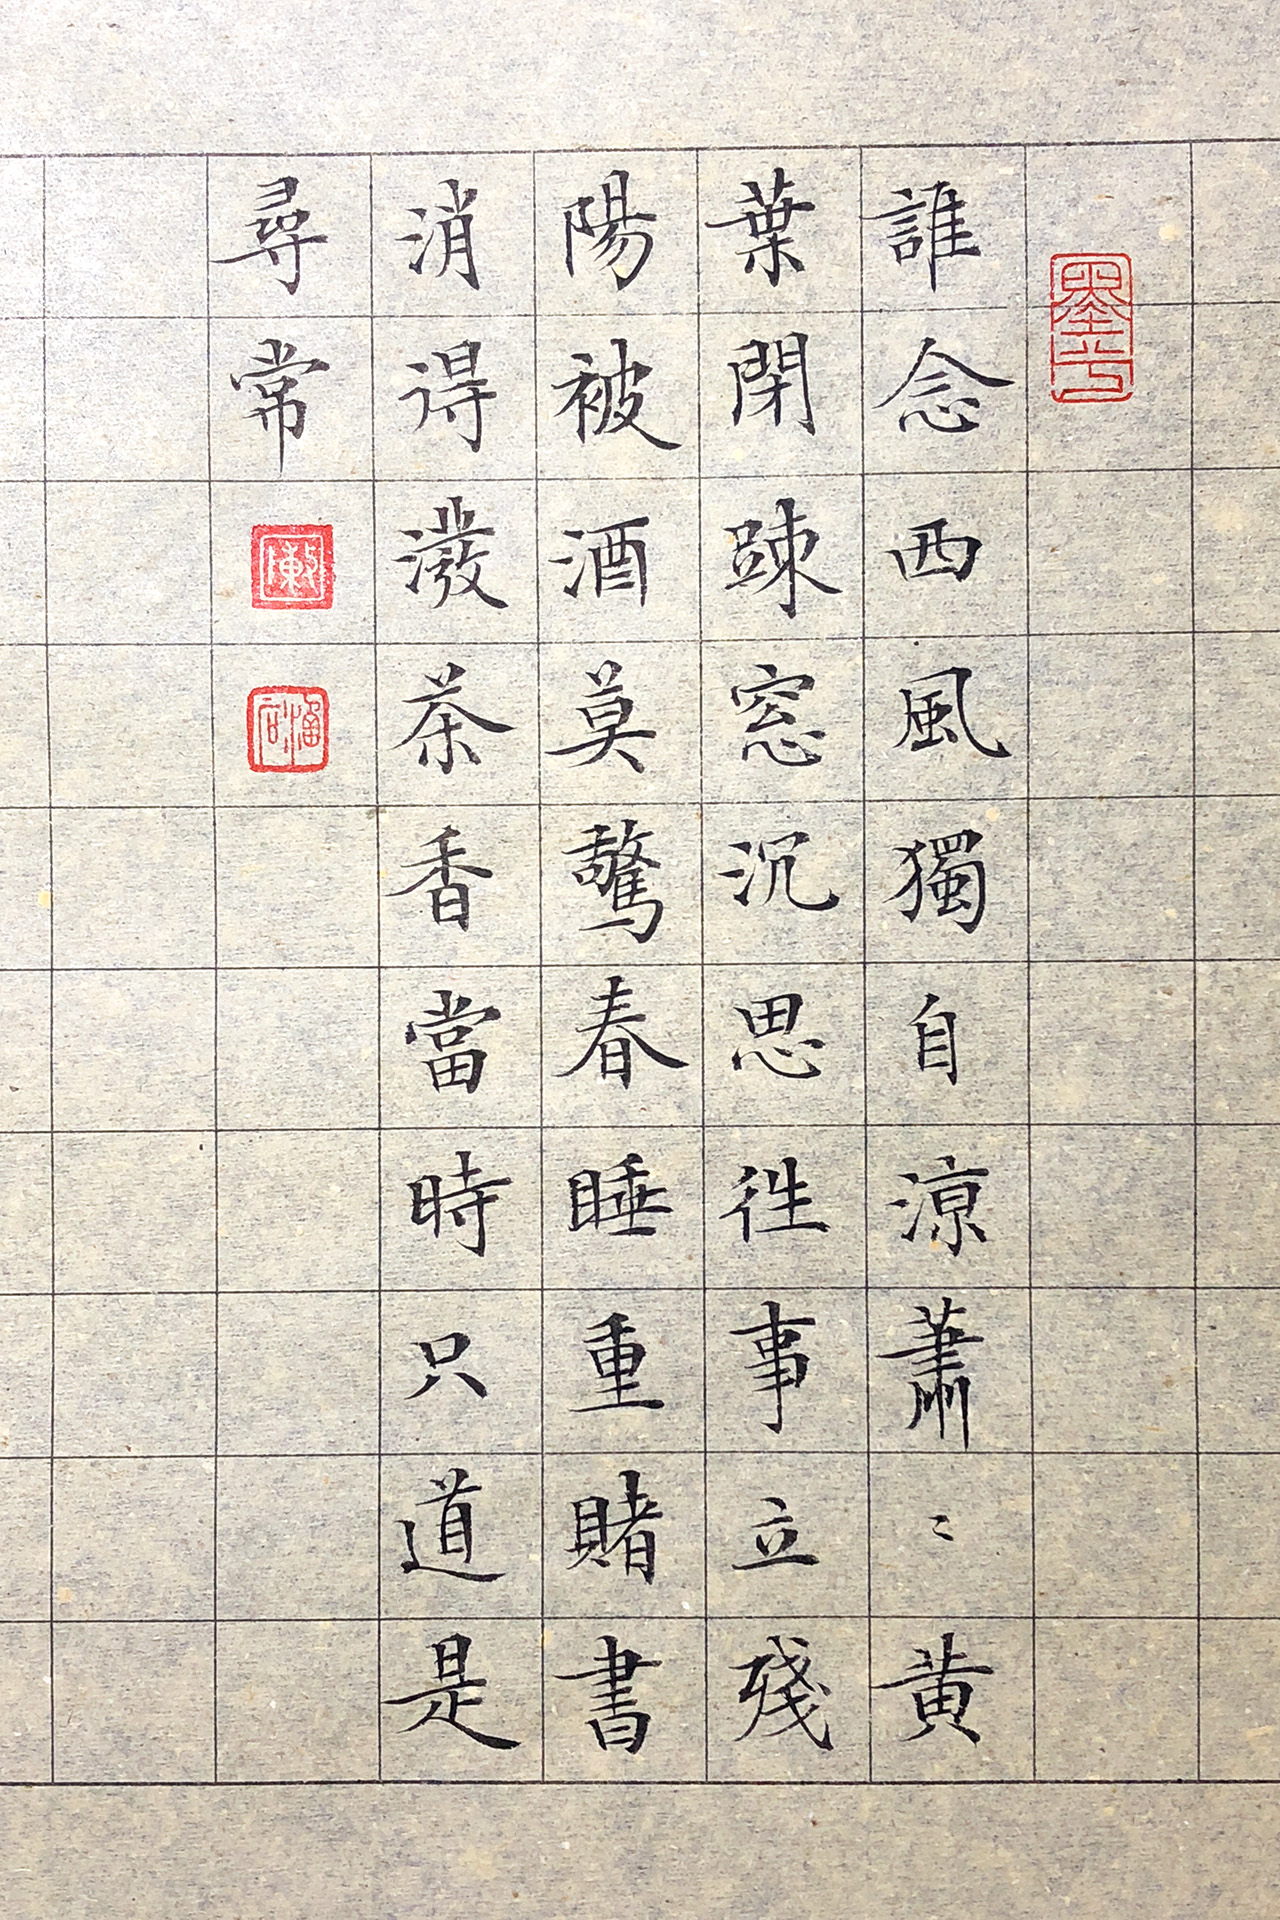 誰念西風獨自涼蕭〻黄
葉閉踈窓沉思徃事立殘
陽被酒莫驚春睡重賭書
消得潑茶香當時只道是
尋常